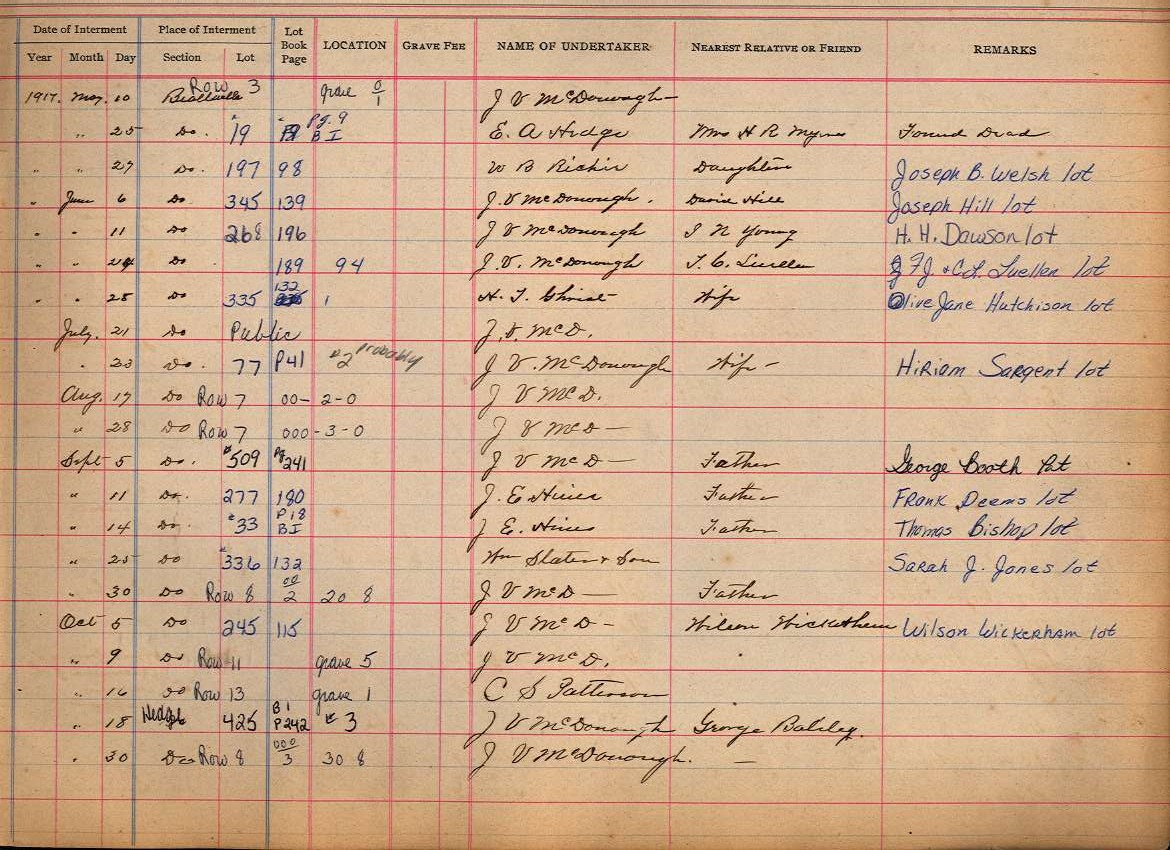 Date of Interment Place of Interment Lot Book Page LOCATION GRAVE FEE NAME OF UNDERTAKER NEAREST RELATIVE OR FRIEND REMARKS
Year Month Day Section Lot
1917. May. 10 Row 3 grave 0/1 J V McDonough
" 25 Do. "19 Pg. 9 B I E. A Hidge Mrs H R Found Dead
" " 27 Do. 197 98 W B Richie Daughter Joseph B. Welsh lot
" June 6 Do 345 139 J. V McDonough. David Hill Joseph Hill lot
" " 11 Do 268 196 J V McDonough I N Young H. H. Dawson lot
" " 24 Do 189 94 J. V. McDonough I. C. Luellen FJ & C.L. Luellen lot
" " 28 Do 335 132 1 H. T. Christ Wife Olive Jane Hutchison lot
July. 21 Do Public J. V. McD.
" 23 Do. 77 P41 #2 probably J V. McDonough Wife - Hiriam Sargent lot
Aug. 17 Do Row 7 00- 2-0 J V McD.
" 28 Do Row 7 000 - 3-0 J V McD —
Sept 5 Do. #509 Pg 241 J V McD — Father George Booth Pat
" 11 Do. 277 180 J. E Hines Father Frank Deems lot
" 14 Do. #33 P18 BI J E. Hines Father Thomas Bishop lot
" 25 Do "336 132 Wm Slater & Son Sarah J. Jones lot
" 30 Do Row 8 00/2 20 8 J V McD — Father
Oct 5 Do 245 115 J V McD - Wilson Wickerham Wilson Wickerham lot
" 9 Do Row 11 grave 5 J V McD.
" 16 Do Row 13 grave 1 C S Patterson
" 18 425 B1 P242 # 3 J V McDonough George
" 30 Do Row 8 000/3 30 8 J V McDonough. —